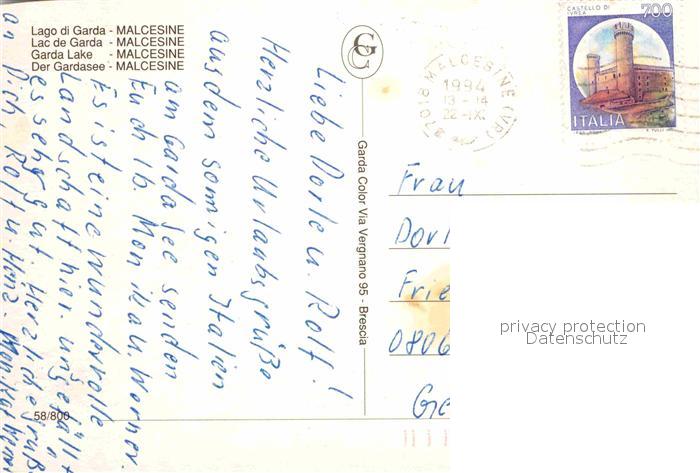 Lago di Garda - MALCESINE
Lac de Garda - MALCESINE
Garda Lake - MALCESINE
Der Gardasee - MALCESINE
GC
37018 MALCESINE (VR)
1994
13-14
22-IX
CASTELLO DI IVREA
700
ITALIA
Liebe Dorle u. Rolf!
Herzliche Urlaubsgrüße
aus dem sonnigen Italien
am Gardasee senden
Euch lb. Monika u. Werner.
Es ist eine wundervolle
Landschaft hier. uns gefällt
es sehr gut. Herzliche Grüße
an Dich Rolf u.
Garda Color Via Vergnano 95 - Brescia
Frau
Dorl
Frie
0806
Ge
58/800
privacy protection
Datenschutz